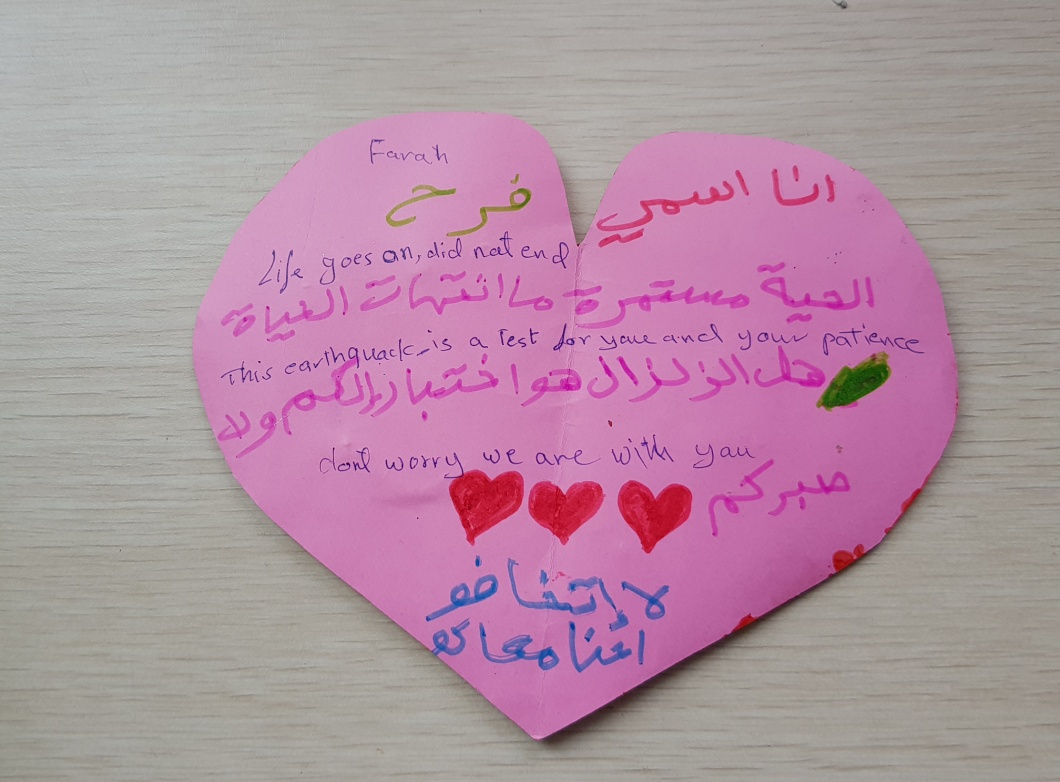 Farah
انا اسمي فرح
Life goes on, did not end
الحية مستمرة ما انتهات الحياة
This earthquack is a Test for you and your patience
هل الزلزال هو اختبار إلكم ولا
dont worry we are with you
صبركم
لا اتخافو
احنا معاكو